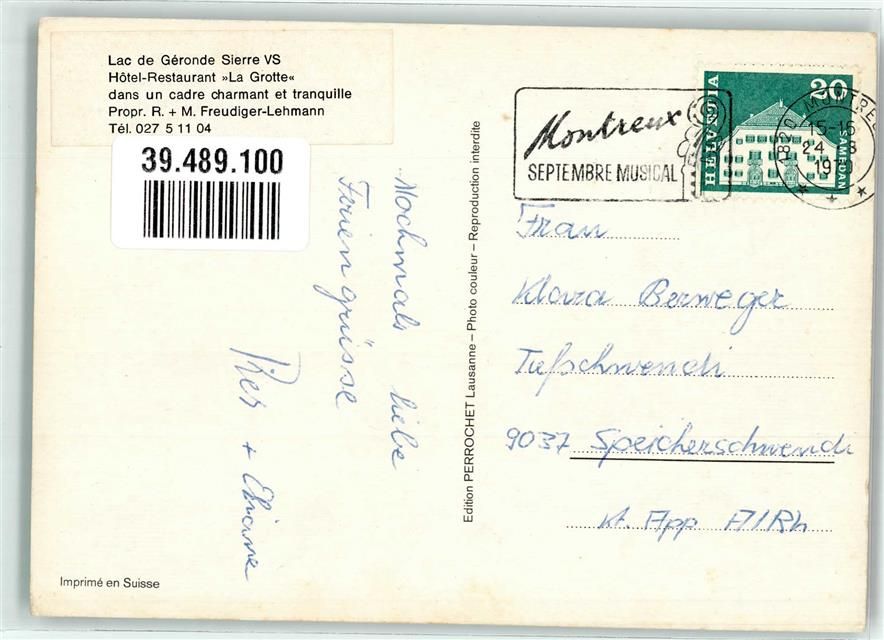 Lac de Géronde Sierre VS
Hôtel-Restaurant »La Grotte«
dans un cadre charmant et tranquille
Propr. R. + M. Freudiger-Lehmann
Tél. 027 5 11 04
39.489.100
Nochmals liebe
Feriengrüsse
+ Eliane
Imprimé en Suisse
Edition PERROCHET Lausanne – Photo couleur – Reproduction interdite
Montreux
SEPTEMBRE MUSICAL
HELVETIA
20
SAMEDAN
1820 MONTREUX
15-16
24
Frau
Klara Berweger
Tufschwendi
9037 Speicherschwendi
Kt. App A/Rh